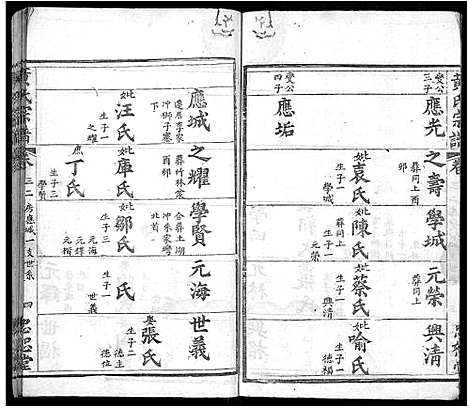 黃氏宗譜
卷
變公
三子
應光
之壽
葬同上酉
卯
妣袁氏
生子一
學城
學城
葬同上
妣陳氏
生子一
元榮
元榮
葬同上
妣蔡氏
生子一
興清
興清
妣喻氏
生子一
德福
變公
四子
應垢
應城
遷居李家
冲獅子巷
下
妣汪氏
生子一
之耀
之耀
葬竹林裳
酉卯
妣庫氏
生子一
庶丁氏
生子三
學賢
學賢
合葬土湖
冲朱家灣
北首
妣鄒氏
生子三
元海
元繹
元楷
元海
妣
氏
生子一
世義
世義
張氏
生子二
德主
德位
黃氏宗譜
卷三
二房應城一支世系
四
忠恕堂